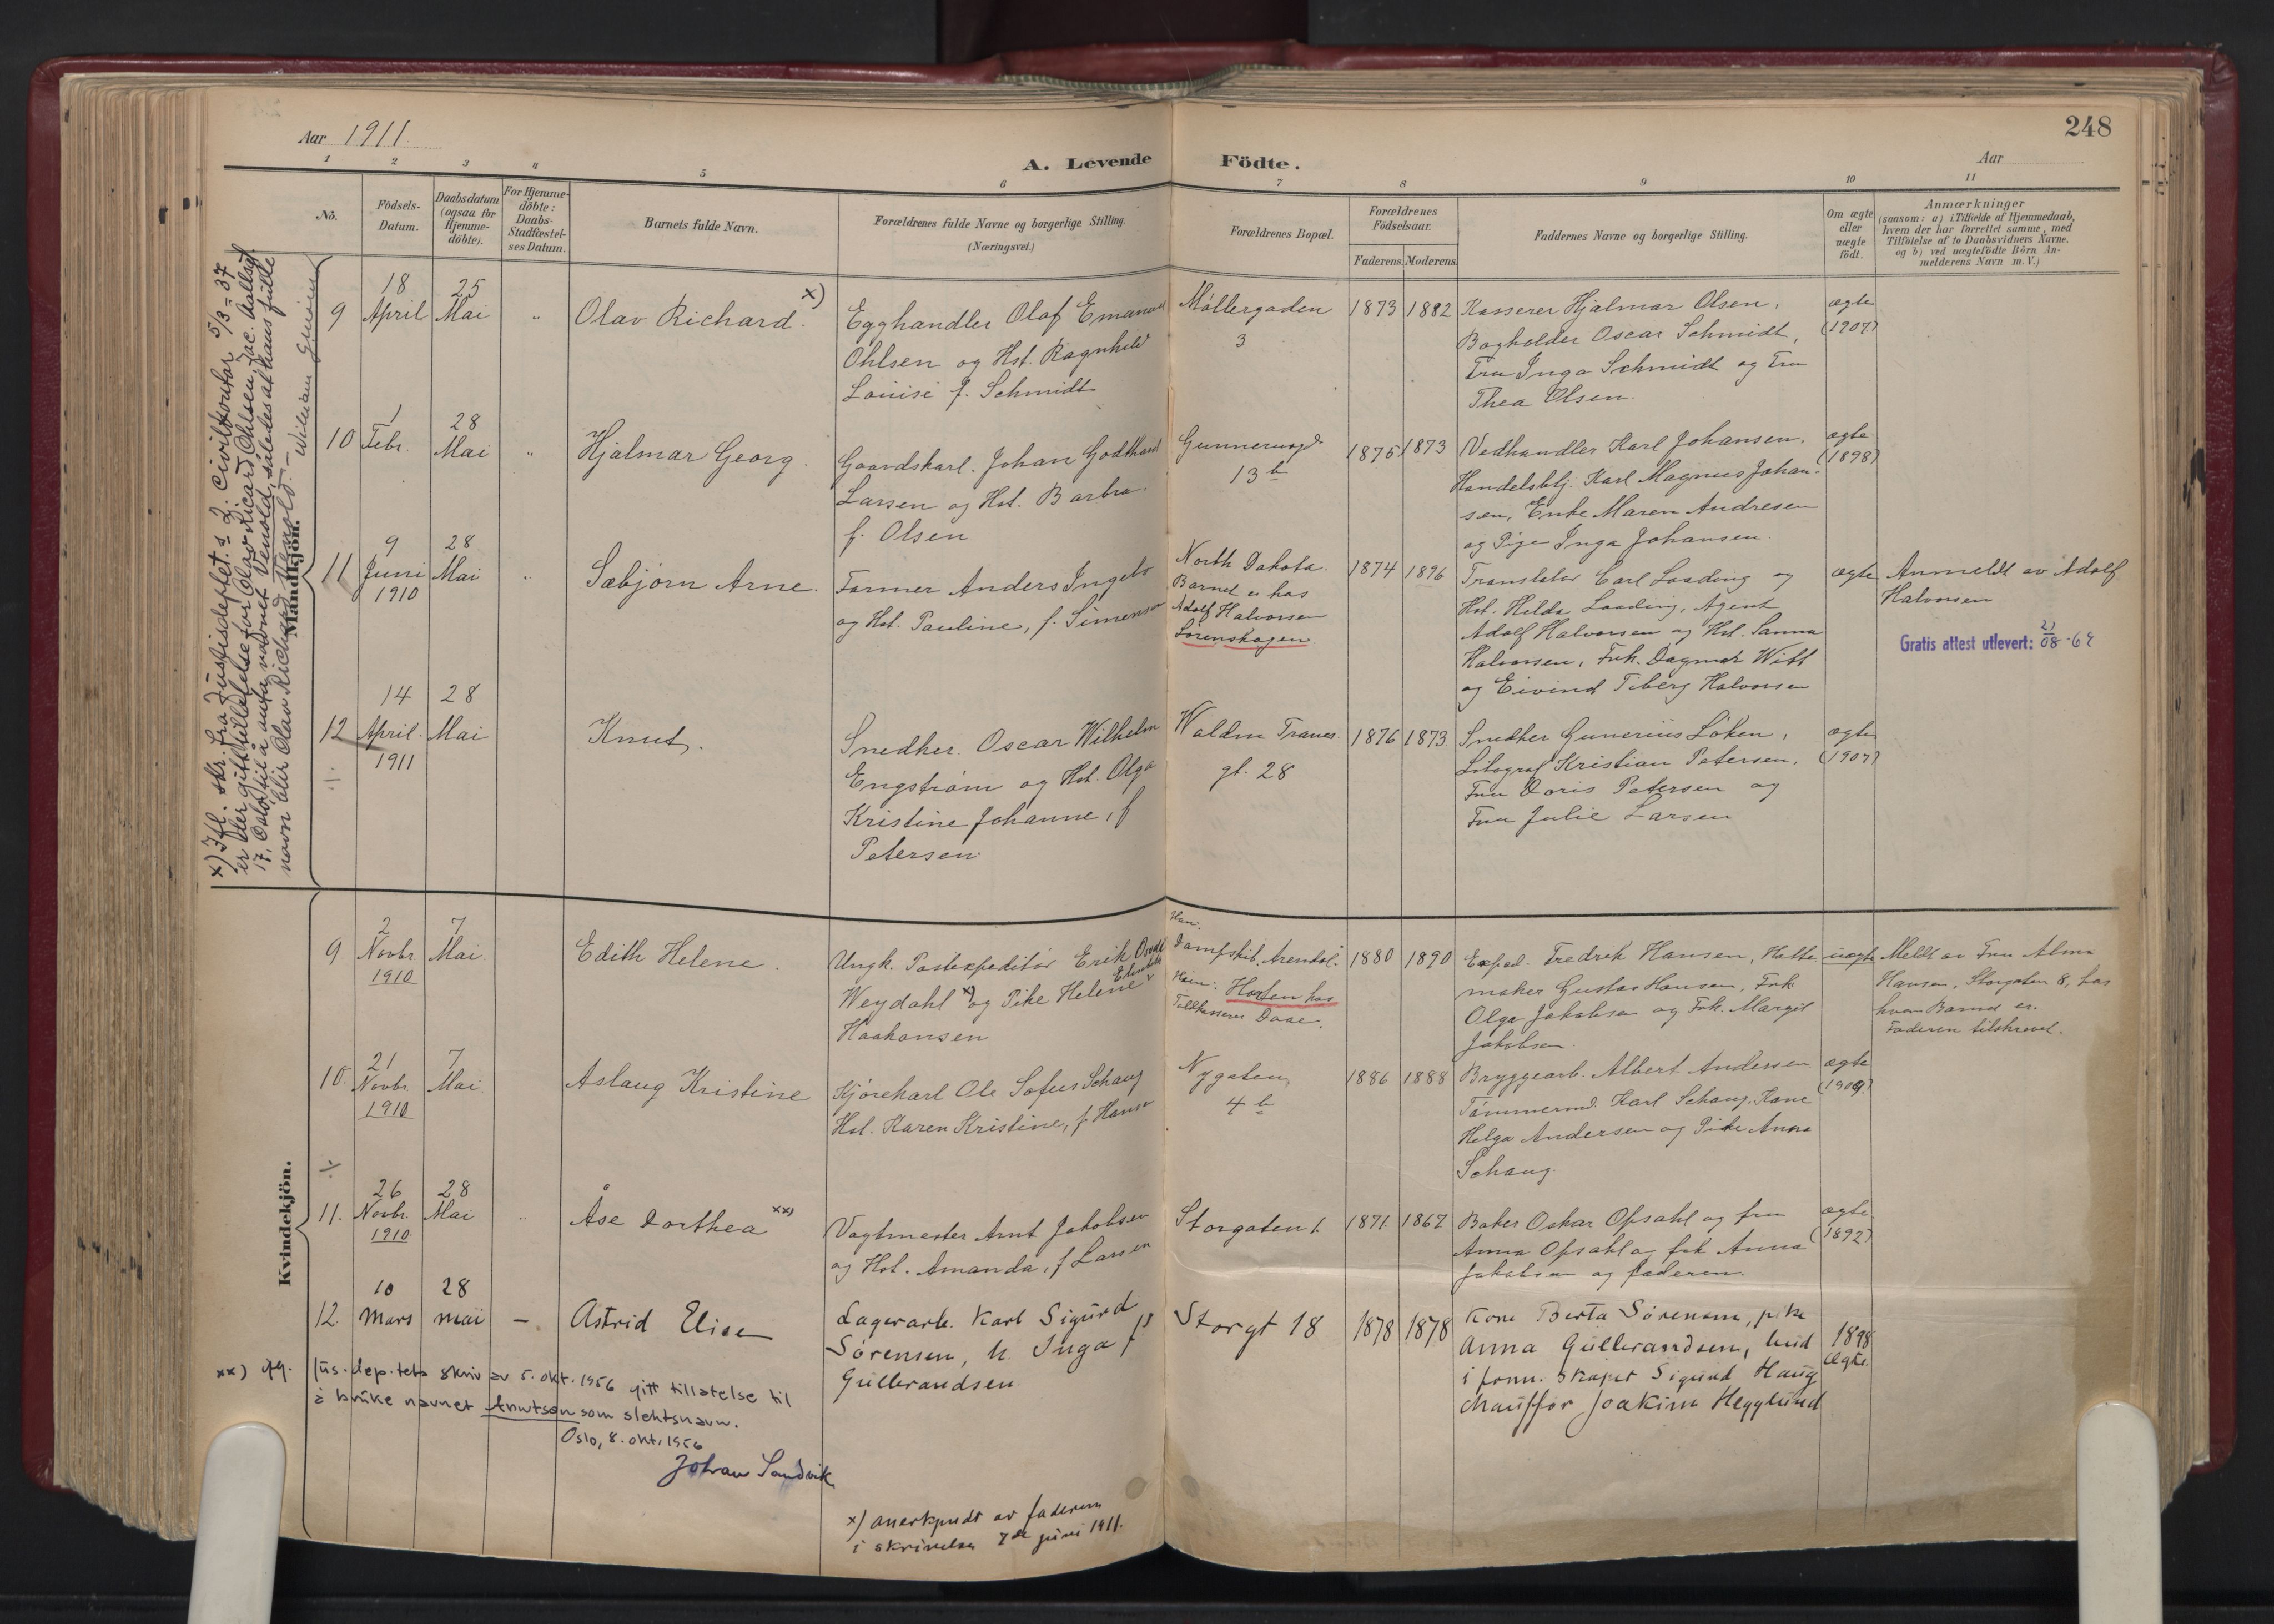 Aar 1911.
A. Levende Födte.
Aar
248
1 2 3 4 5 6 7 8 9 10 11
No.
Födsels-
Datum.
Daabsdatum
(ogsaa for
Hjemme-
döbte).
For Hjemme-
döbte:
Daabs-
Stadfæstel-
ses Datum.
Barnets fulde Navn.
Forældrenes fulde Navne og borgerlige Stilling.
(Næringsvei.)
Forældrenes Bopæl.
Forældrenes
Födselsaar.
Faderens. Moderens.
Faddernes Navne og borgerlige Stilling.
Om ægte
eller
uægte
födt.
Anmærkninger
(saasom: a) i Tilfælde af Hjemmedaab,
hvem der har forrettet samme, med
Tilföielse af to Daabsvidners Navne.
og b) ved uægtefödte Börn An-
melderens Navn m. V.)
x) Ifl. skr. fra Justisdeptet. s 2. Civilkontor 5/3-37
er der gitt tillatelse for Olav Ricard Ohlsen,
17, Oslo til å anta navnet Venold, således at hans fulde
navn blir Olav Richard Venold. –
Mandkjön.
9
18
April
25
Mai
"
Olav Richard. x)
Egghandler Olaf Emanuel
Ohlsen og Hst. Ragnhild
Louise f. Schmidt
Möllergaden
3
1873 1882
Kasserer Hjalmar Olsen,
Bogholder Oscar Schmidt,
Fru Inga Schmidt og Fru
Thea Olsen.
ægte
(1907)
10
1
Febr.
28
Mai
"
Hjalmar Georg.
Gaardskarl. Johan Godthard
Larsen og Hst. Barbra
f. Olsen
Gunnerusgd.
13 b
1875 1873
Vedhandler Karl Johansen,
Handelsbtj. Karl Magnus Johan-
sen, Enke Maren Andresen
og Pige Inga Johansen.
ægte
(1898)
11
9
Juni
1910
28
Mai
"
Sæbjørn Arne.
Farmer Anders Ingebr
og Hst. Pauline, f. Simensen
North Dakota.
Barnet er hos
Adolf Halvorsen
Lørenskogen.
1874 1896
Translatør Carl Laading og
Hst. Hilda Laading, Agent
Adolf Halvorsen og Hst. Sanna
Halvorsen, Frk. Dagmar Witt
og Eivind Tiberg Halvorsen
ægte
Anmeldt av Adolf
Halvorsen
Gratis attest utlevert: 21/08-68
12
14
April
1911
28
Mai
Knut.
Snedker. Oscar Wilhelm
Engstrøm og Hst. Olga
Kristine Johanne, f
Petersen.
Waldm Tranes
gt. 28
1876 1873
Snedker Gunerius Löken,
Litograf Kristian Petersen,
Fru Doris Petersen og
Fru Julie Larsen
ægte
(1907)
Kvindekjön.
9
2
Novbr
1910
7
Mai.
Edith Helene.
Ungk. Postexpeditør Erik
Weydahl x) og Pike Helene
Haakonsen
Han:
Dampskib. Arendal.
Hun: Horten hos
Toldkasserer Daae.
1880 1890
Exped. Fredrik Hansen, Hatte-
maker Gustav Hansen, Frk
Olga Jakobsen og Frk. Margit
Jakobsen.
uægte
Meldt av Fru Alma
Hansen, Storgaten 8, hos
hvem Barnet er.
Faderen tilskrevet.
10.
21
Novbr.
1910
7
Mai.
Aslaug Kristine
Kjørekarl Ole Sofus Schaug
Hst. Karen Kristine, f. Hansen
Nygaten,
4 b
1886 1888
Bryggearb. Albert Andersen
Tömmermd. Karl Schaug, Kone
Helga Andersen og Pike Anna
Schaug
ægte
(1909)
11.
26
Novbr.
1910
28
Mai
"
Åse Dorthea xx)
Vagtmester Arnt Jakobsen
og Hst. Amanda, f Larsen
Storgaten 1.
1871. 1867
Baker Oskar Opsahl og fru
Anna Opsahl og frk Anna
Jakobsen og faderen.
ægte
(1892)
12.
10
Mars
28
mai
–
Astrid Elise
Lagerarb. Karl Sigurd
Sörensen, h. Inga f
Gulbrandsen
Storgt 18
1878 1878
Kone Berta Sörensen, pike
Anna Gulbrandsen, bud
i forn. skapet Sigurd Haug
chauffør Joakim Hegglund
1898
ægte.
xx) Jus. dep.tets skriv av 5. okt. 1956 gitt tillatelse til
å bruke navnet Arnutsen som slektsnavn.
Oslo, 8. okt. 1956
Johan Sandvik
x) anerkjendt av faderen
i skrivelse 7de juni 1911.